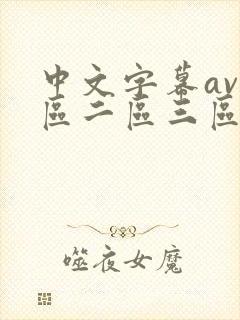 中文字幕av
區二區三區
噬夜女魔